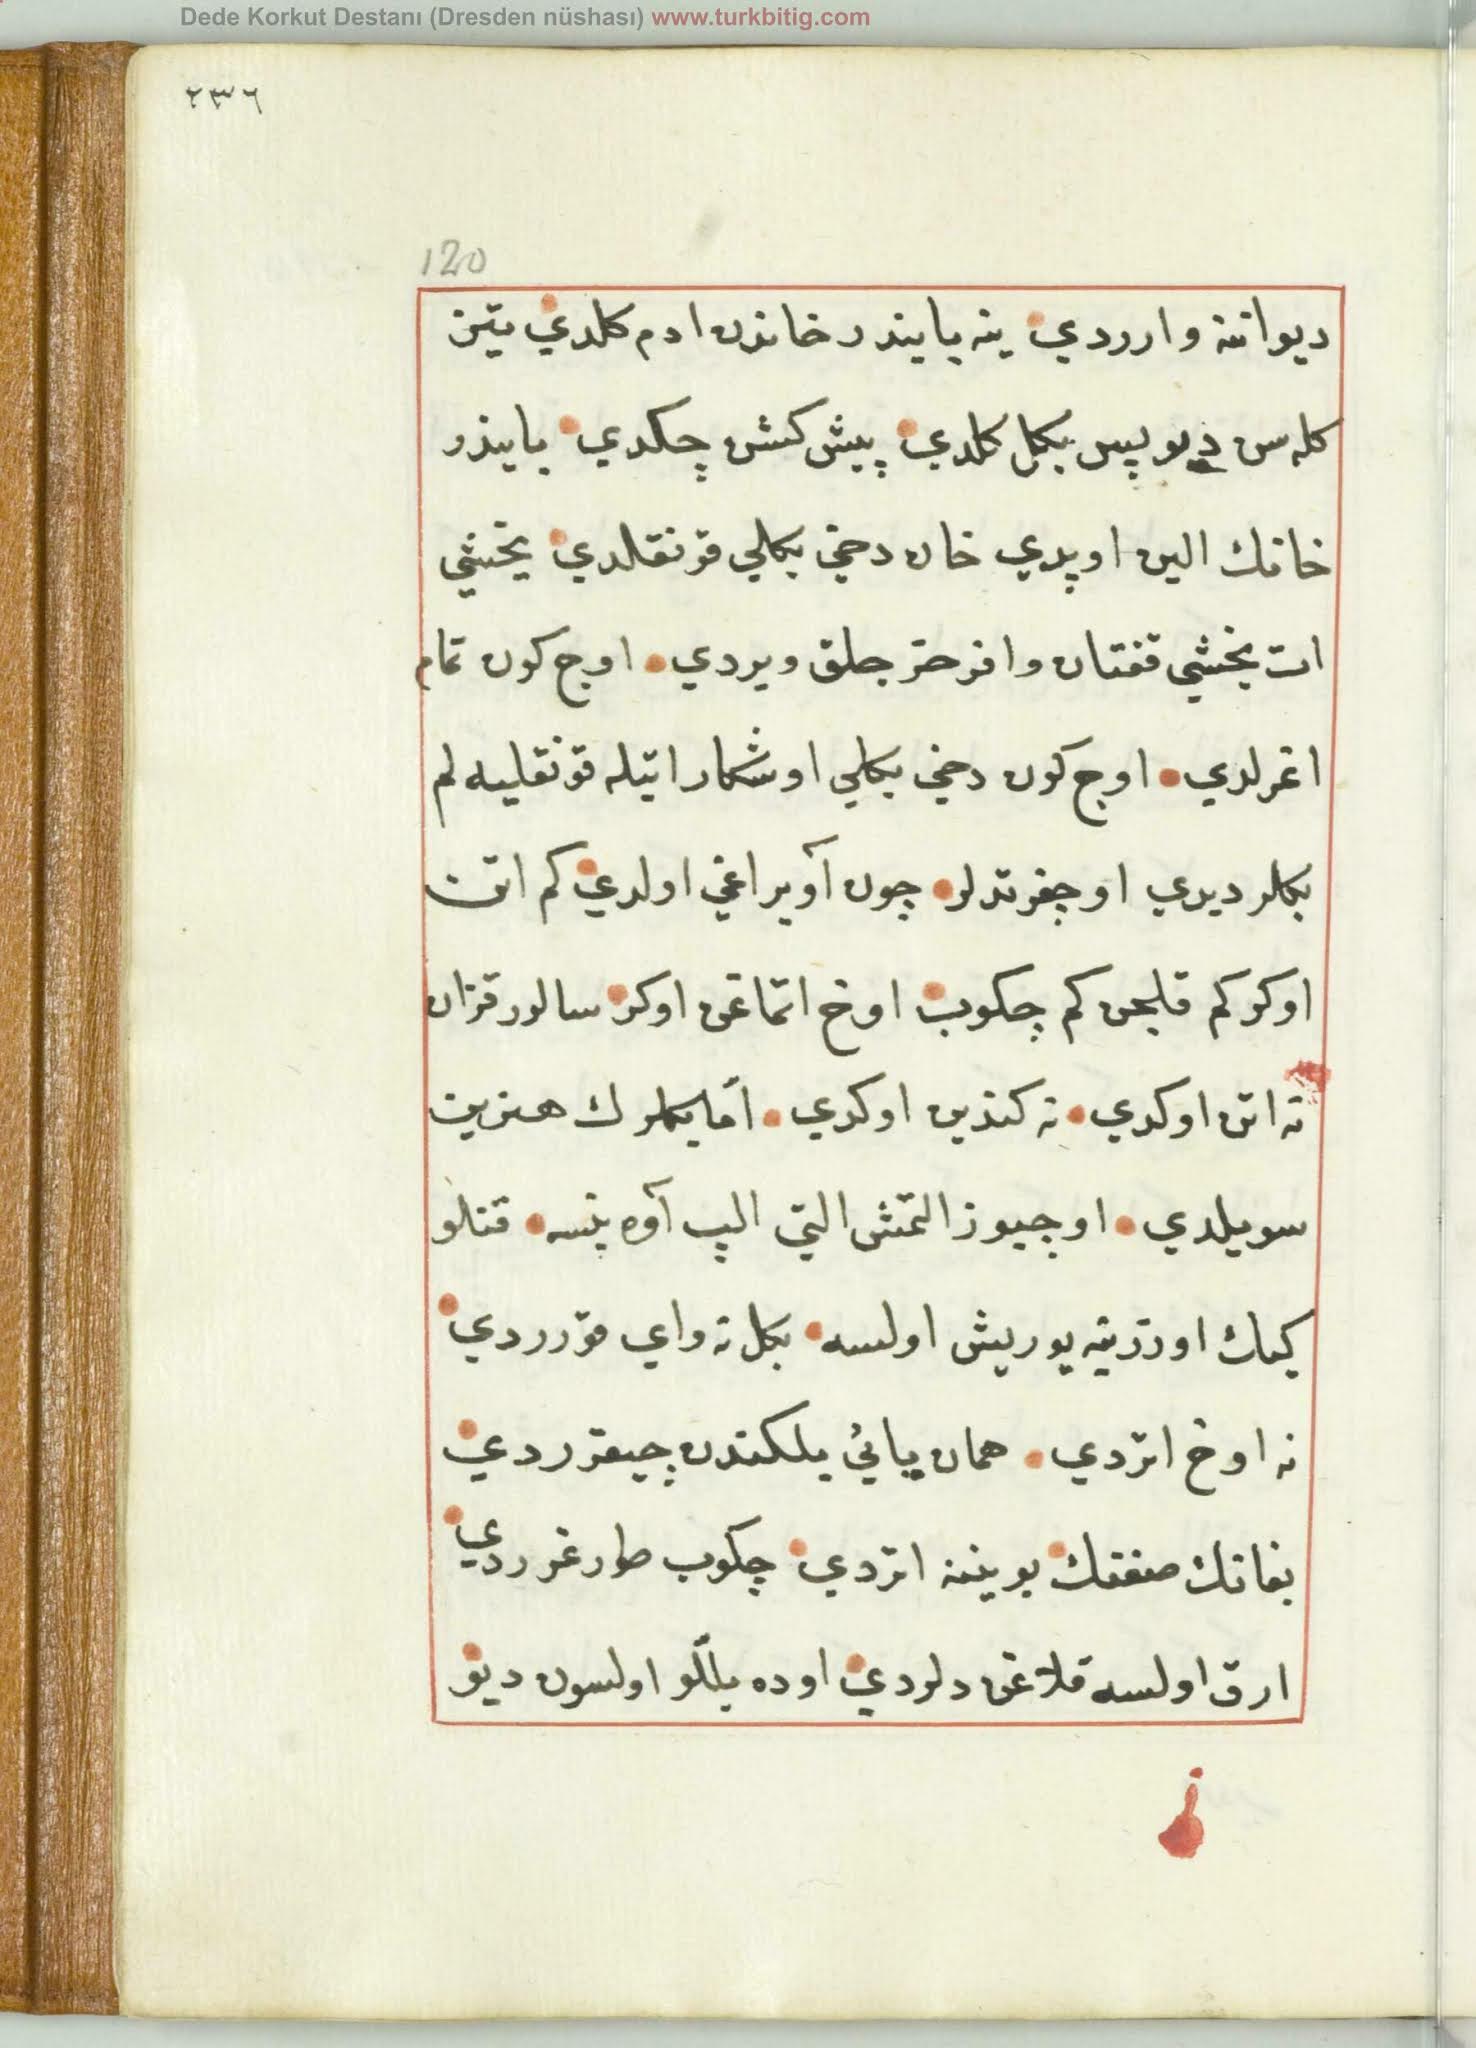 Dede Korkut Destanı (Dresden nüshası) www.turkbitig.com
٢٣٦
120
ديواننه وارردي ينه بايندر خاندن ادم كلدي تيز
كله سن ديو پس بكل كلدي پيش كش چكدي بايندر
خانك الين اوپدي خان دخي بكلي قونقلدي يخشي
ات يخشي قفتان وافر خرجلق ويردي اوج كون تمام
اغرلدي اوج كون دخي بكلي او شكار اتيله قونقليه لم
بكلر ديدي اوچغرتدلر چون آو يراغي اولدي كم اتن
اوكر كم قلجن كم چكوب اوخ اتماغن اوكر سالور قزان
نه اتن اوكدي نه كندين اوكدي اما بكلرك هنرين
سويلدي اوجيوز التمش التي الپ آوه بنسه قنلو
كيك اوزرينه يوريش اولسه بكل نه واي قوررردي
نه اوخ اتردي همان يايي بلكندن چيقرردي
بغانك صغنك بوينينه اتردي چكوب طورغرردي
ارق اولسه قلاغن دلردي اوده بللو اولسون ديو